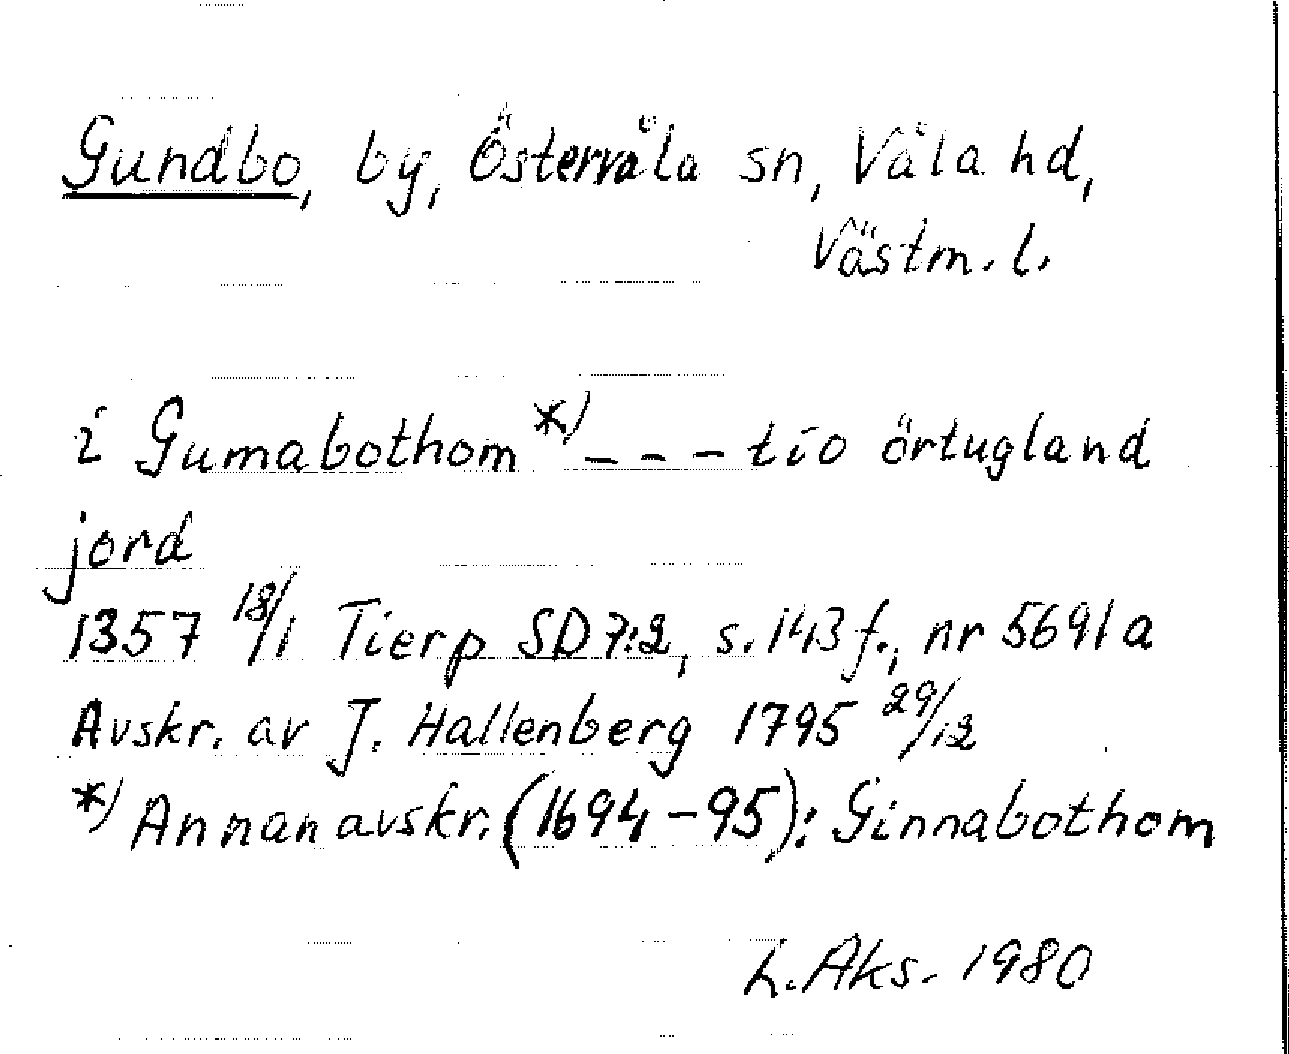 Gundbo, by, Östervåla sn, Våla hd,
Västm. l.
i Gumabothom *) - - - tio örtugland
jord
1357 18/1 Tierp SD 7:2, s. 143 f., nr 5691 a
Avskr. av J. Hallenberg 1795 29/12
*) Annan avskr. (1694-95): Ginnabothom
L. Aks. 1980